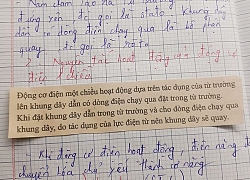 - Nam châm tạo ra từ
đứng yên, tc gọi là stato. Khung dây
dẫn có dòng điện chạy qua là bộ phận
quay, tc gọi là rôto
2. Nguyên tắc hoạt động của động cơ
điện 1 chiều
Động cơ điện một chiều hoạt động dựa trên tác dụng của từ trường
lên khung dây dẫn có dòng điện chạy qua đặt trong từ trường.
Khi đặt khung dây dẫn trong từ trường và cho dòng điện chạy qua
khung dây, do tác dụng của lực điện từ nên khung dây sẽ quay.
Khi động cơ điện hoạt động, điện năng đc
chuyển hóa thành cơ năng